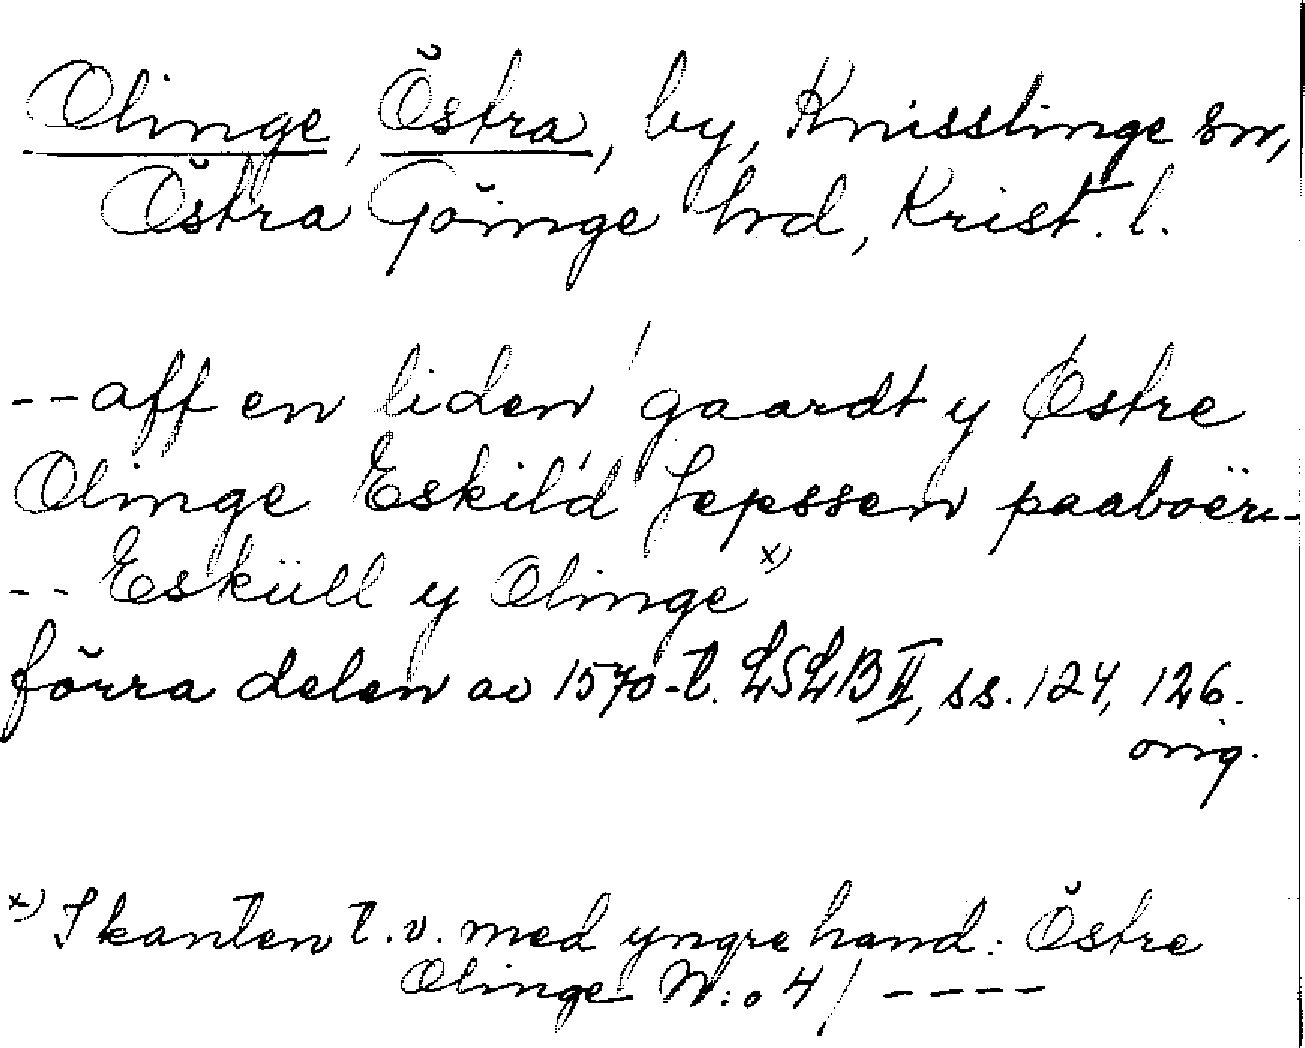 Olinge, Östra, by, Knisslinge sn,
Östra Göinge hd, Krist. l.
--aff en liden gaardt y Østre
Olinge Eskild Jepssen paaboër--
-- Esküll y Olinge x)
förra delen av 1570-t. LSLB II, ss. 124, 126.
orig.
x) I kanten t.v. med yngre hand: Östre
Olinge N:o 4/ ----